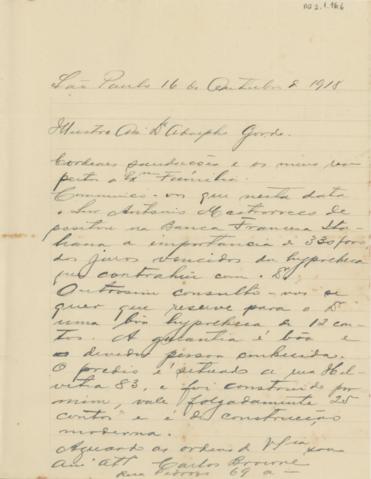 São Paulo 16 de Outubro de 1918
Illustre Am. Dr Adolpho Gordo.
Cordeaes saudacções e os meus res-
peitos a Exma Familia.
Communico-vos que nesta data
o Snr Antonio de
positou na Banca Franceza Ita
liana a importancia de
dos juros vencidos da hypotheca
que contrahiu com o Dr
Outrosim consulto-vos se
quer que reserve para o Dr
uma bôa hypotheca de 12 con-
tos. A garantia é bôa e
o devedor pessoa conhecida.
O predio é situado a rua Hel
vetia 83, e foi construido por
mim, vale folgadamente 25
contos e é de construcção
moderna.
Aguardo as ordens de V Sia sou
Am Att Carlos
Rua 69 a